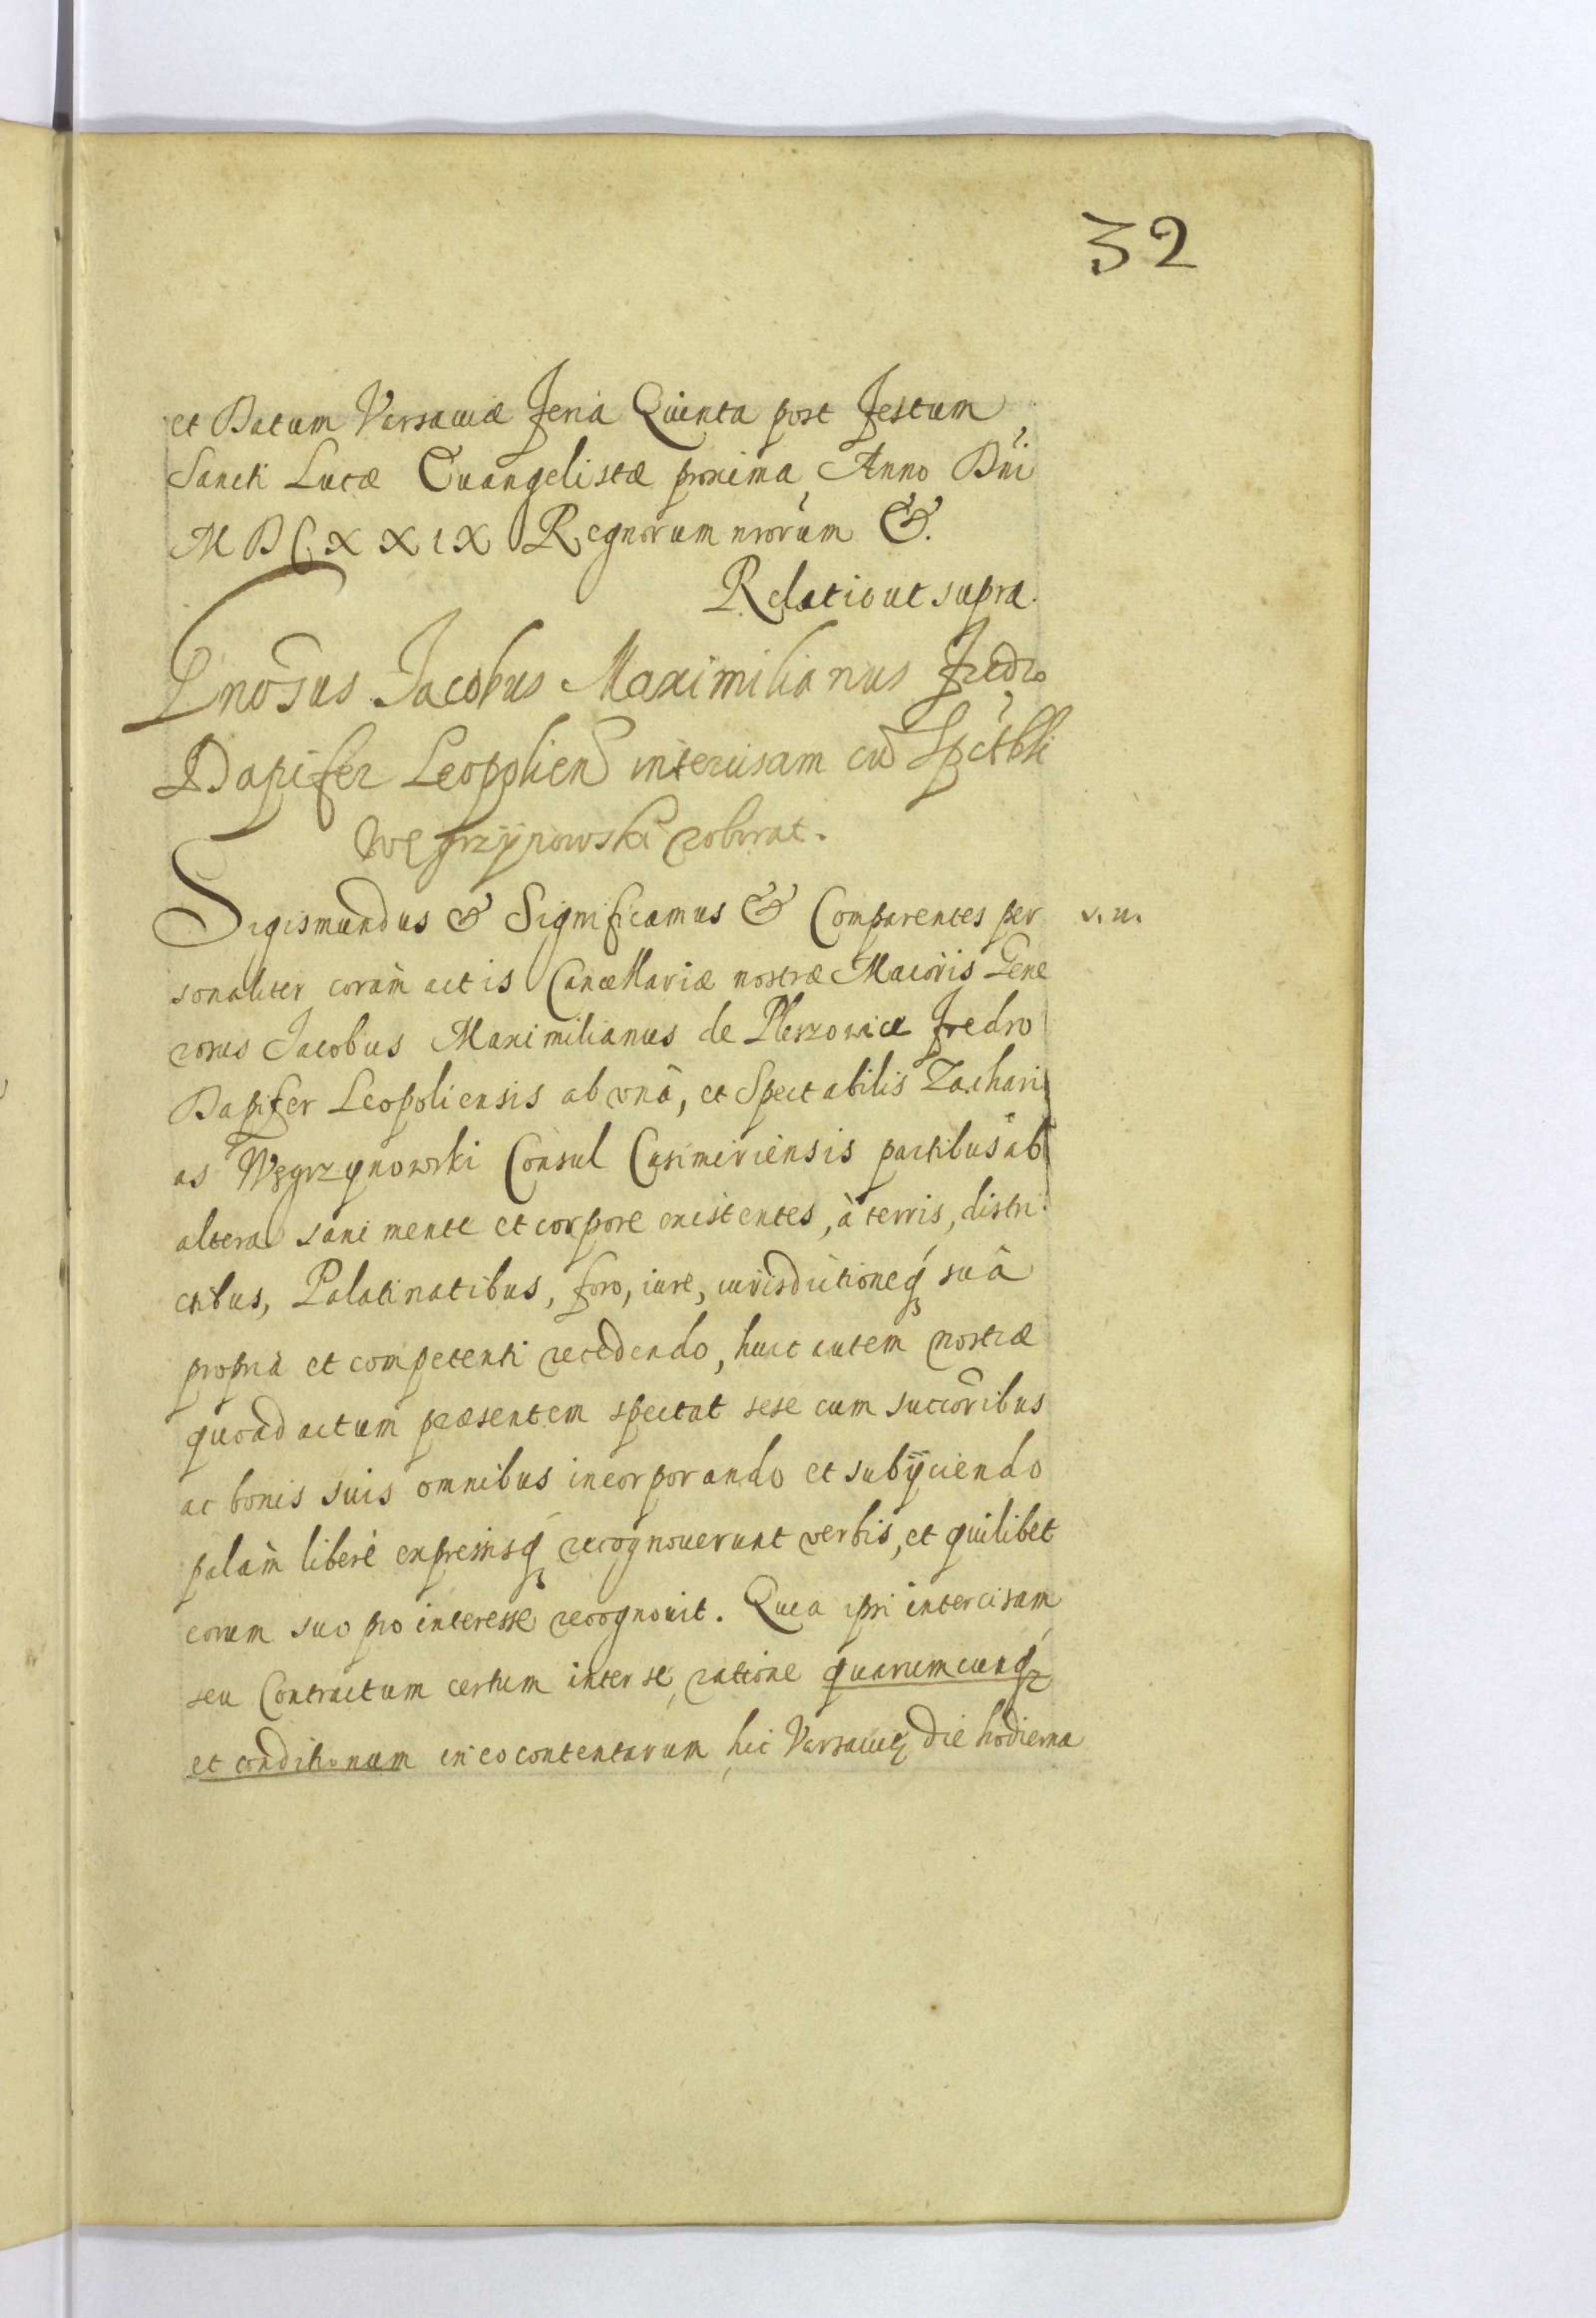 32
et Datum Varsaviæ Feria Quinta post Festum
Sancti Lucæ Euangelistæ proxima, Anno Dni
MDCXXIX Regnorum nrorum &.
Relatio ut supra.
Gnosus Jacobus Maximilianus Fredro
Dapifer Leopolien intercisam cũ Spctbli
Węgrzynowski roborat.
Sigismundus & Significamus & Comparentes per v. u.
sonaliter coràm actis Cancellariæ nostræ Maioris Gene
rosus Jacobus Maximilianus de Pleszowice Fredro
Dapifer Leopoliensis ab vnâ, et Spectabilis Zachari
as Węgrzynowski Consul Casimiriensis partibus ab
altera sani mente et corpore existentes, à terris, distri
ctibus, Palatinatibus, foro, iure, iurisdictioneq́ suâ
propriâ et competenti recedendo, huic autem nostræ
quoad actum præsentem spectat sese cum succoribus
ac bonis suis omnibus incorporando et subijciendo
palàm liberè expressisq́ recognouerunt verbis, et quilibet
eorum suo pro interesse recognouit. Quia ipsi intercisam
seu Contractum certum inter se, ratione quarumcunq́
et conditionum in eo contentarum, hic Varsauię die hodierna